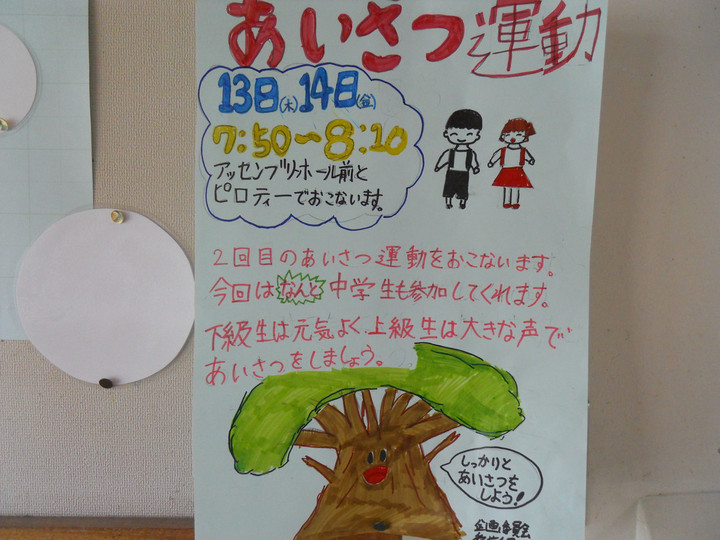 あいさつ運動
13日(木)14日(金)
7:50〜8:10
アッセンブリーホール前と
ピロティーでおこないます。
2回目のあいさつ運動をおこないます。
今回はなんと中学生も参加してくれます。
下級生は元気よく、上級生は大きな声で
あいさつをしましょう。
しっかりと
あいさつを
しよう!
企画委員会